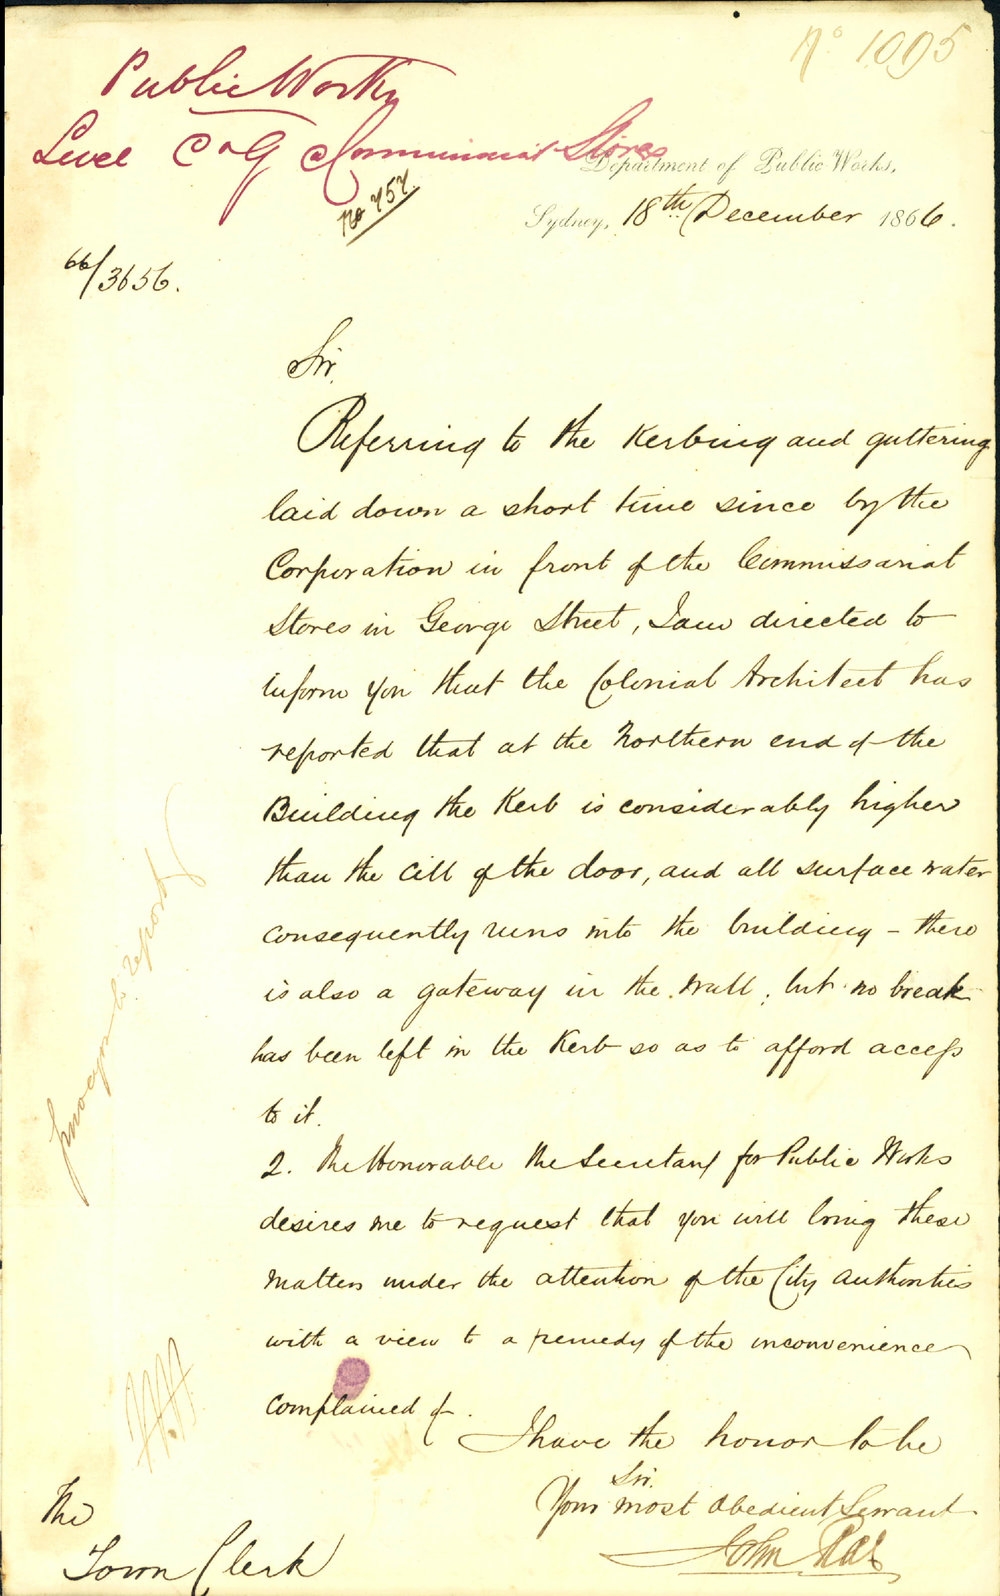 No 1095
Public Works
Level C & G Commissariat Stores
No 757
Department of Public Works,
Sydney, 18th December 1866.
66/3656.
Sir,
Referring to the Kerbing and guttering
laid down a short time since by the
Corporation in front of the Commissariat
Stores in George Street, I am directed to
inform you that the Colonial Architect has
reported that at the Northern end of the
Building the Kerb is considerably higher
than the Cill of the door, and all surface water
consequently runs into the building – there
is also a gateway in the wall, but no break
has been left in the Kerb so as to afford access
to it.
2. The Honorable the Secretary for Public Works
desires me to request that you will bring these
matters under the attention of the City Authorities
with a view to a remedy of the inconvenience
complained of.
I have the honor to be
Sir.
Your most Obedient Servant
John Rae
The
Town Clerk